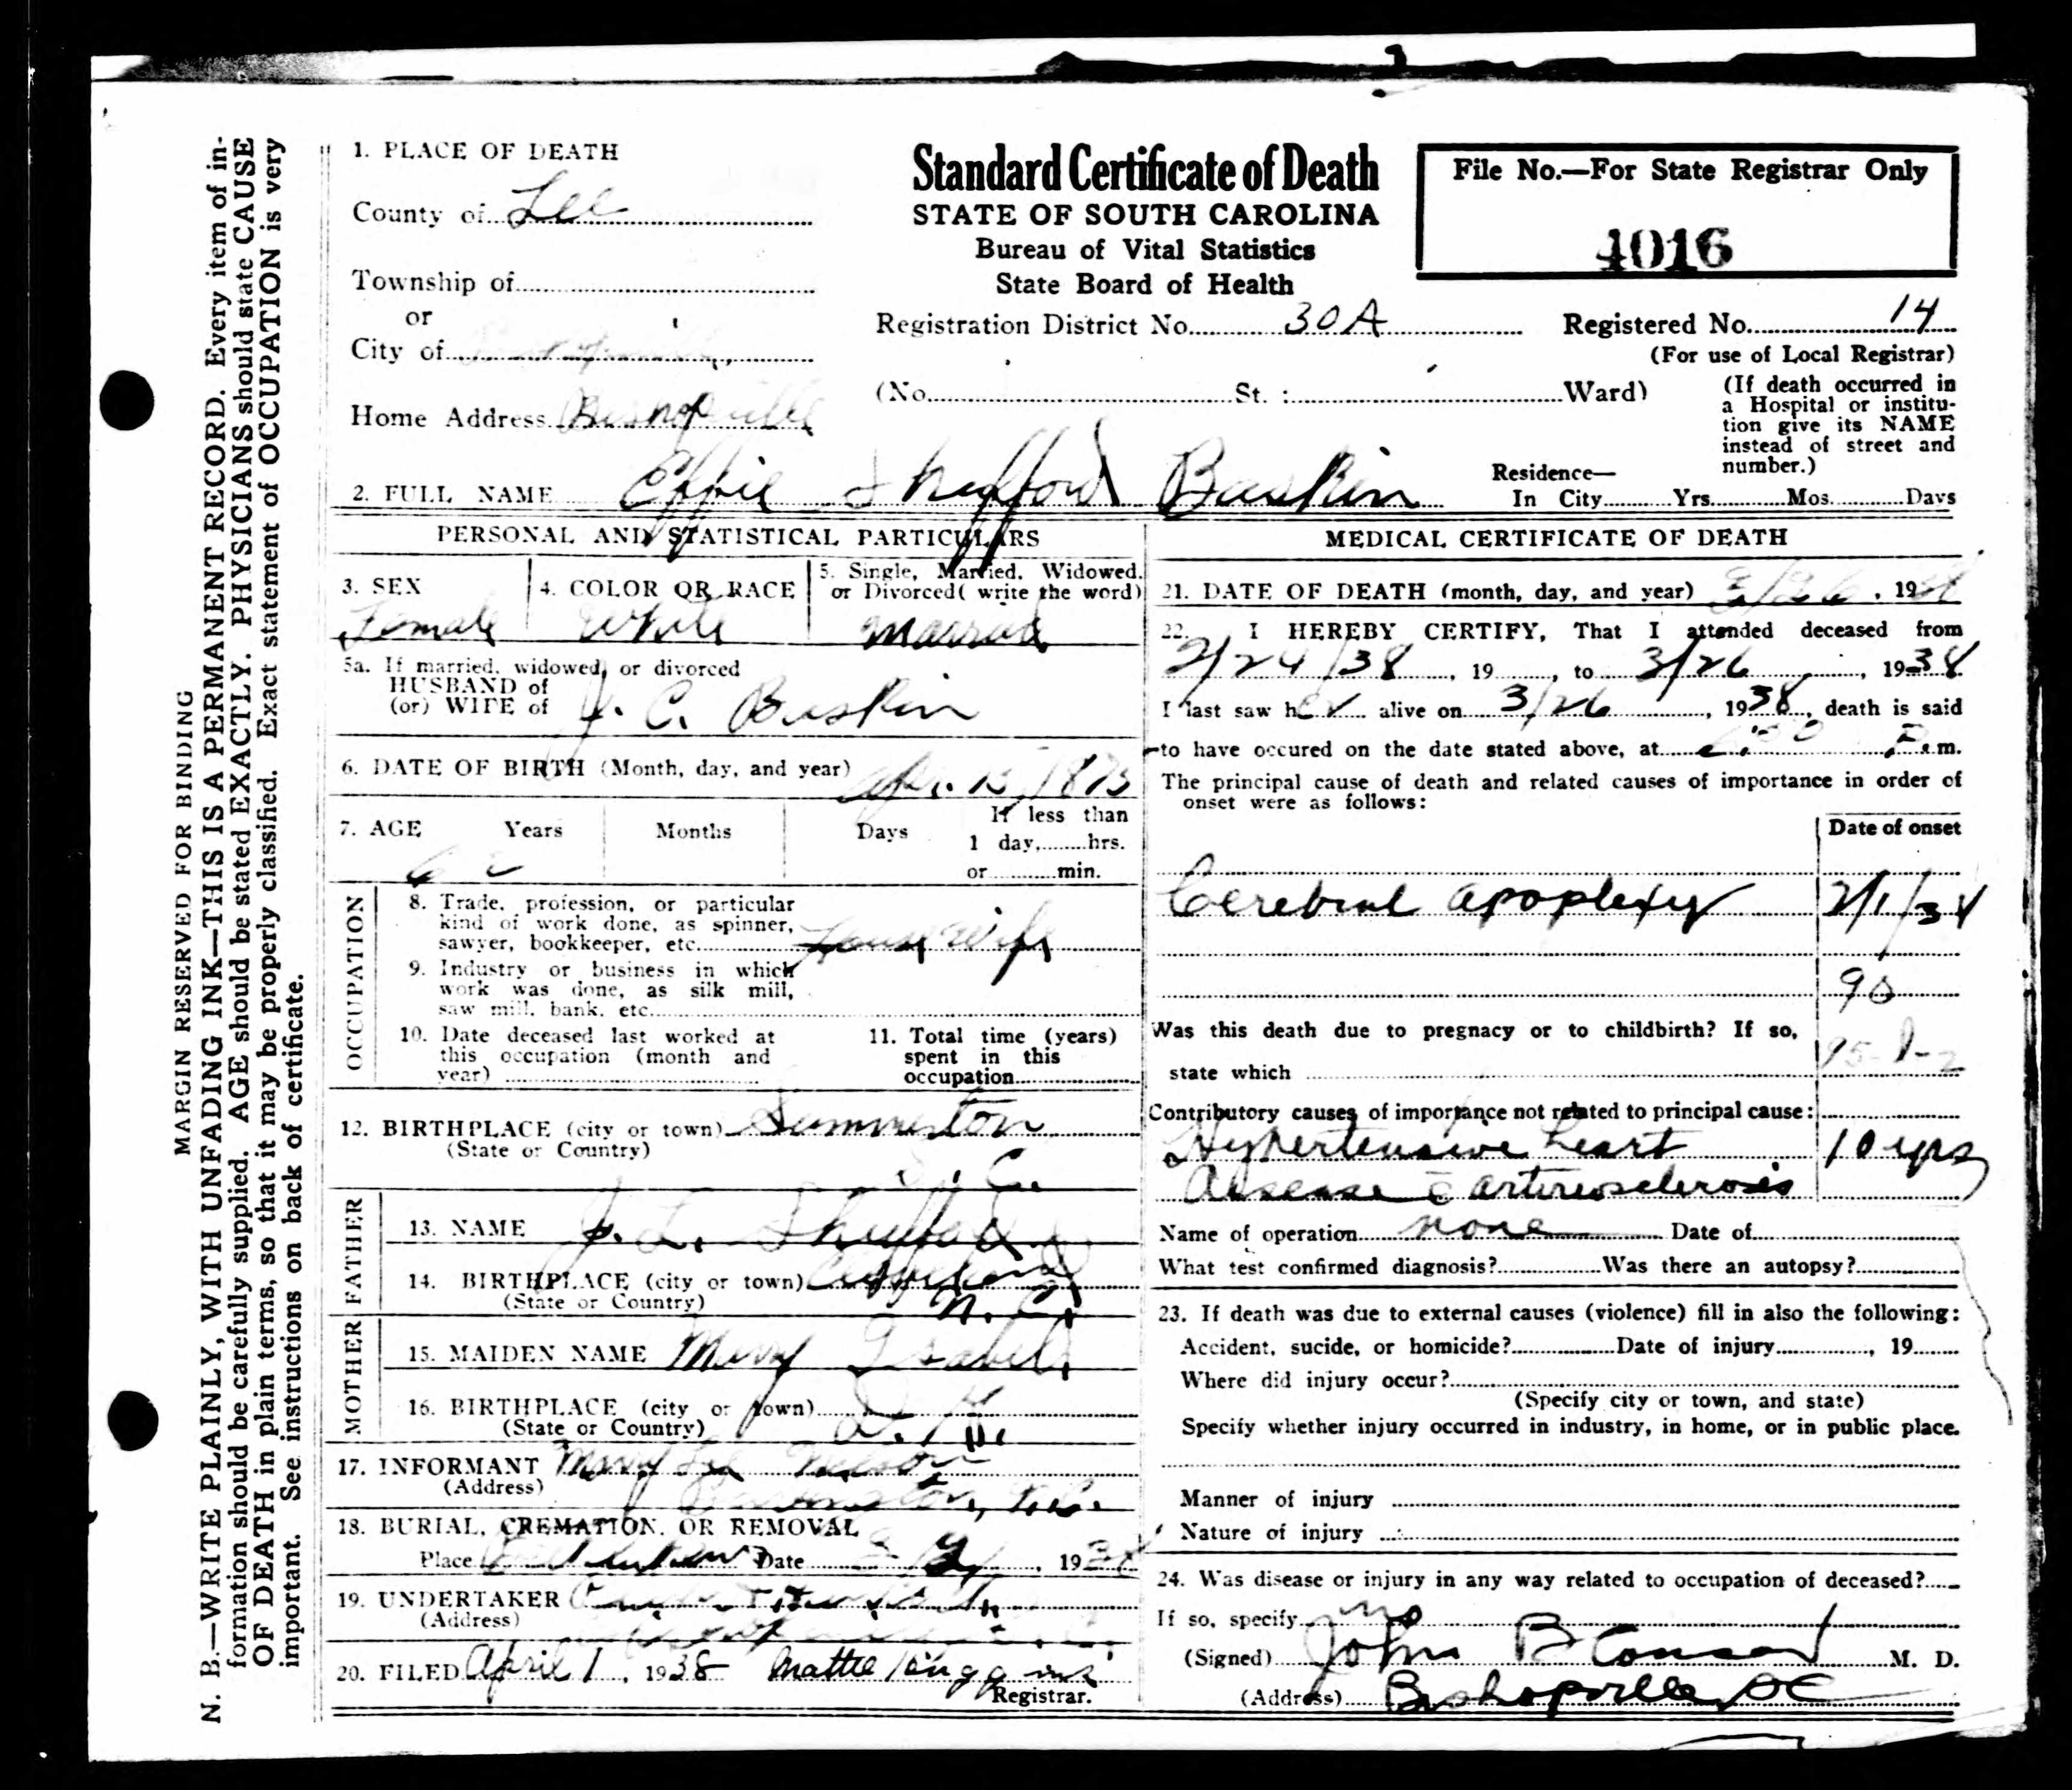 MARGIN RESERVED FOR BINDING
N. B.—WRITE PLAINLY, WITH UNFADING INK—THIS IS A PERMANENT RECORD. Every item of in-
formation should be carefully supplied. AGE should be stated EXACTLY. PHYSICIANS should state CAUSE
OF DEATH in plain terms, so that it may be properly classified. Exact statement of OCCUPATION is very
important. See instructions on back of certificate.
1. PLACE OF DEATH
County of Lee
Township of
or
City of
Home Address Bishopville
Standard Certificate of Death
STATE OF SOUTH CAROLINA
Bureau of Vital Statistics
State Board of Health
File No.—For State Registrar Only
4016
Registration District No. 30A
Registered No. 14
(For use of Local Registrar)
(No. St. : Ward)
(If death occurred in
a Hospital or institu-
tion give its NAME
instead of street and
number.)
2. FULL NAME Effie Shufford Baskin
Residence—
In City Yrs. Mos. Days
PERSONAL AND STATISTICAL PARTICULARS
3. SEX
Female
4. COLOR OR RACE
White
5. Single, Married, Widowed,
or Divorced( write the word)
Married
5a. If married, widowed, or divorced
HUSBAND of
(or) WIFE of J. C. Baskin
6. DATE OF BIRTH (Month, day, and year) Apr. 13, 1873
7. AGE Years Months Days
If less than
1 day, hrs.
or min.
OCCUPATION
8. Trade, profession, or particular
kind of work done, as spinner,
sawyer, bookkeeper, etc. House wife
9. Industry or business in which
work was done, as silk mill,
saw mill, bank, etc.
10. Date deceased last worked at
this occupation (month and
year)
11. Total time (years)
spent in this
occupation
12. BIRTHPLACE (city or town) Summerton
(State or Country) S. C.
FATHER
13. NAME J. L. Shufford
14. BIRTHPLACE (city or town)
(State or Country) N. C.
MOTHER
15. MAIDEN NAME Mary Isabel
16. BIRTHPLACE (city or town)
(State or Country) D. K.
17. INFORMANT Mary Lee
(Address)
18. BURIAL, CREMATION, OR REMOVAL
Place Date , 1938
19. UNDERTAKER
(Address)
20. FILED April 1, 1938 Mattie
Registrar.
MEDICAL CERTIFICATE OF DEATH
21. DATE OF DEATH (month, day, and year) 3/26, 1938
22. I HEREBY CERTIFY, That I attended deceased from
2/24/38, 19 , to 3/26, 1938
I last saw her alive on 3/26, 1938, death is said
to have occured on the date stated above, at P. m.
The principal cause of death and related causes of importance in order of
onset were as follows:
Date of onset
Cerebral apoplexy 2/1/38
90
95-1-2
Was this death due to pregnacy or to childbirth? If so,
state which
Contributory causes of importance not related to principal cause:
Hypertensive heart 10 yrs
disease c̄ arteriosclerosis
Name of operation none Date of
What test confirmed diagnosis? Was there an autopsy?
23. If death was due to external causes (violence) fill in also the following:
Accident, sucide, or homicide? Date of injury , 19
Where did injury occur?
(Specify city or town, and state)
Specify whether injury occurred in industry, in home, or in public place.
Manner of injury
Nature of injury
24. Was disease or injury in any way related to occupation of deceased?
If so, specify no
(Signed) John B M. D.
(Address) Bishopville SC